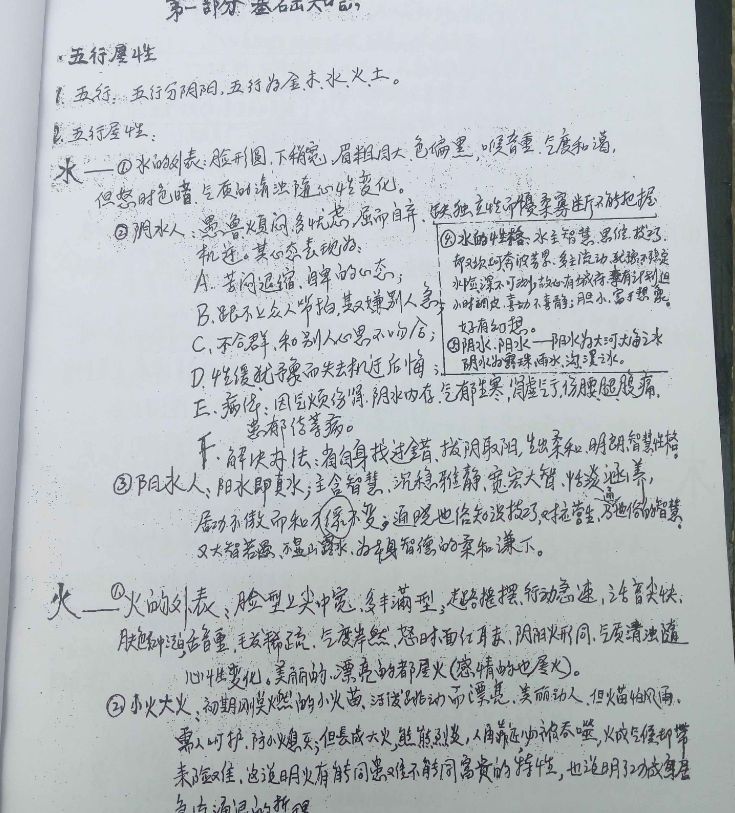 第一部分 基础知识
·五行属性
1. 五行：五行分阴阳，五行为金、木、水、火、土。
2. 五行属性：
水——①水的外表：脸形圆、下稍宽，眉粗目大，色偏黑，喉音重，气度和蔼，
但怒时色暗，气质的清浊随心性变化。
②阴水人：愚鲁烦闷，多忧虑，屈而自弃，缺独立性而优柔寡断不能把握
机运。其心态表现为：
A. 苦闷退缩，自卑的心态；
B. 跟不上众人节拍，其又嫌别人急；
C. 不合群，和别人心思不吻合；
D. 性缓犹予豫而失去机运后悔；
E. 病伤：因气烦伤肾，阴水内存，气郁生寒，肾虚亏，伤腰腿腹痛，
患郁结等病。
F. 解决办法：省自身找过错，拔阴取阳，生出柔和、明朗智慧性格。
④水的性格：水主智慧、思维、技巧，
水险深不可测，故心有城府，
小时调皮，喜动不喜静；胆小，富于想象。
好有幻想。
⑤阴水、阳水——阳水为大河大海之水
阴水为露珠、雨水、沟溪之水。
③阳水人：阳水即真水；主含智慧，沉稳雅静，宽宏大智，恬淡涵养，
居功不傲而和
又大智若愚，不显山露水，为本身智德的柔和谦下。
火——①火的外表：脸型上尖中宽，多丰满型；走路摇摆，行动急速，语音尖快，
毛发稀疏，气度岸然，怒时面红耳赤，阴阳火形同，气质清浊随
心性变化。美丽的、漂亮的都属火（感情的也属火）。
②小火大火：初期刚燃的小火苗，活泼跳动而漂亮，美丽动人，但火苗怕风雨，
需人呵护，防小火熄灭；但长成大火，熊熊烈焰，人再靠近必被吞噬，火成气候却带
来险难，这说明火有能同患难不能同富贵的特性，也说明了功成
急流涌退的哲理